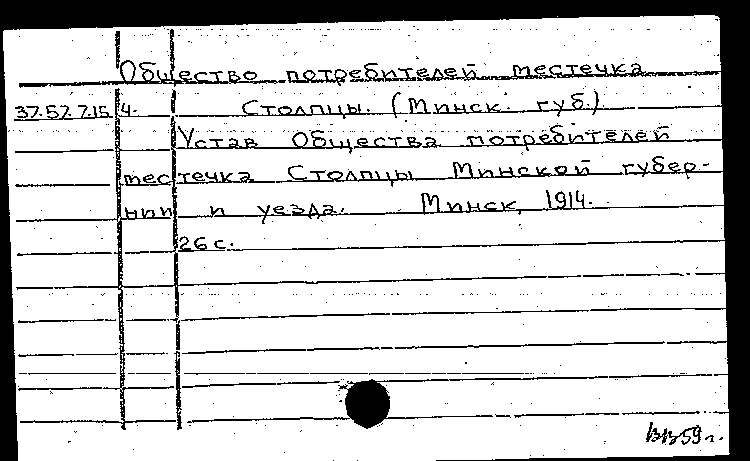 Общество потребителей местечка
37.57.7.15 4. Столпцы. (Минск. губ.)
Устав Общества потребителей
местечка Столпцы Минской губер-
нии и уезда. Минск, 1914.
26 с.
59 г.